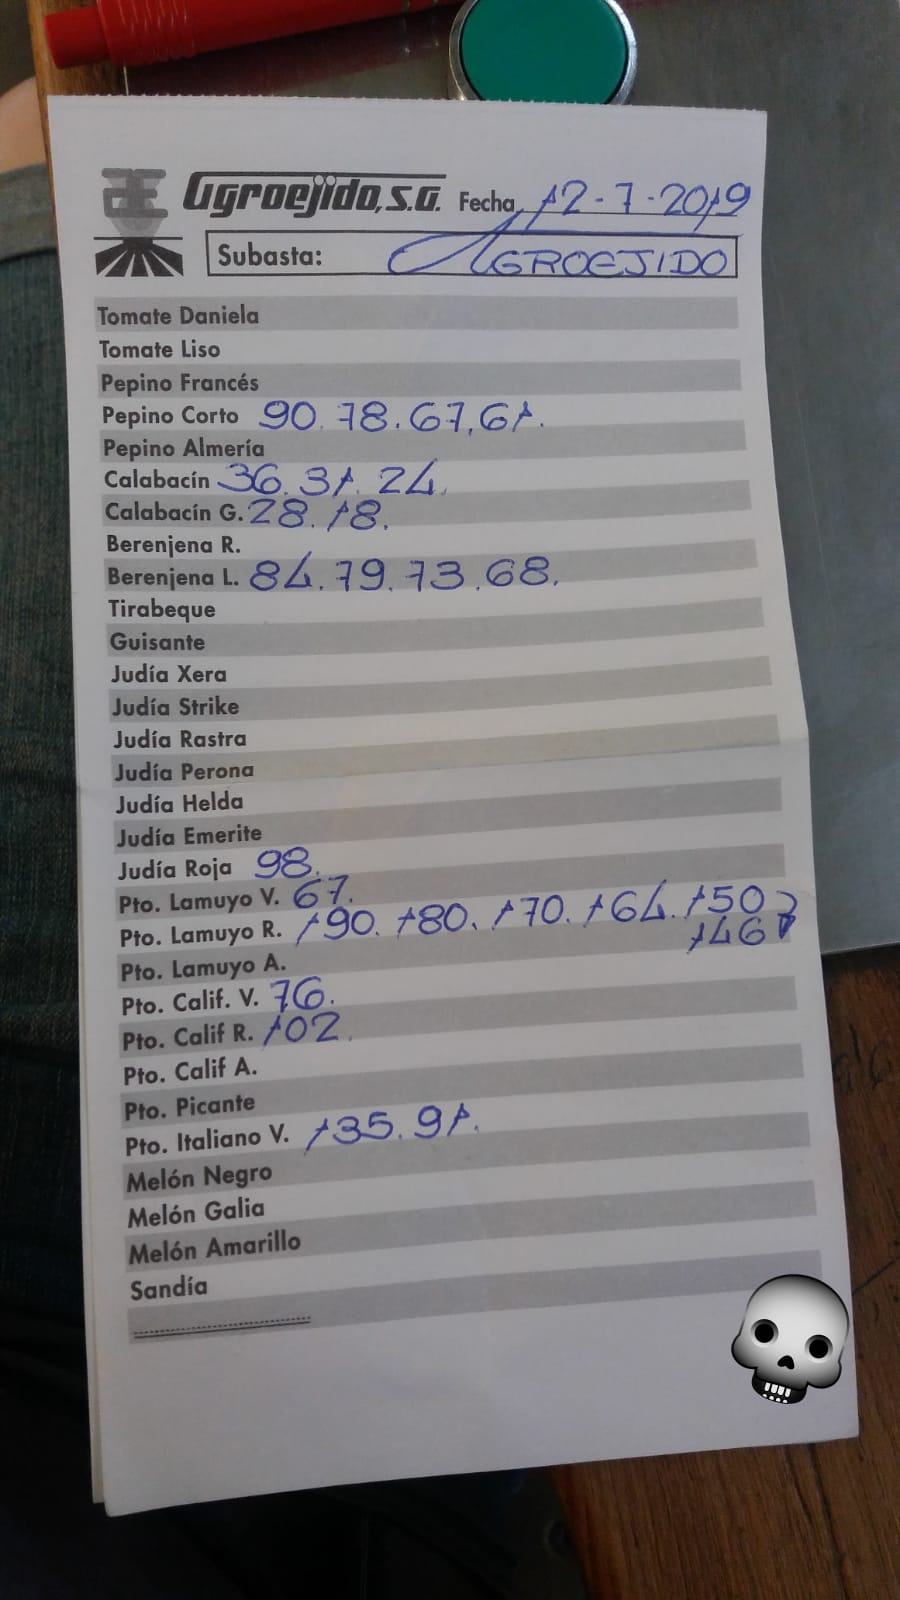 Agroejido, S.A. Fecha 12-7-2019
Subasta: AGROEJIDO
Tomate Daniela
Tomate Liso
Pepino Francés
Pepino Corto 90.78.67.61.
Pepino Almería
Calabacín 36.31.24.
Calabacín G. 28.18.
Berenjena R.
Berenjena L. 84.79.73.68.
Tirabeque
Guisante
Judía Xera
Judía Strike
Judía Rastra
Judía Perona
Judía Helda
Judía Emerite
Judía Roja 98.
Pto. Lamuyo V. 67.
Pto. Lamuyo R. 190. 180. 170. 164. 150
146
Pto. Lamuyo A.
Pto. Calif. V. 76.
Pto. Calif R. 102.
Pto. Calif A.
Pto. Picante
Pto. Italiano V. 135. 91.
Melón Negro
Melón Galia
Melón Amarillo
Sandía